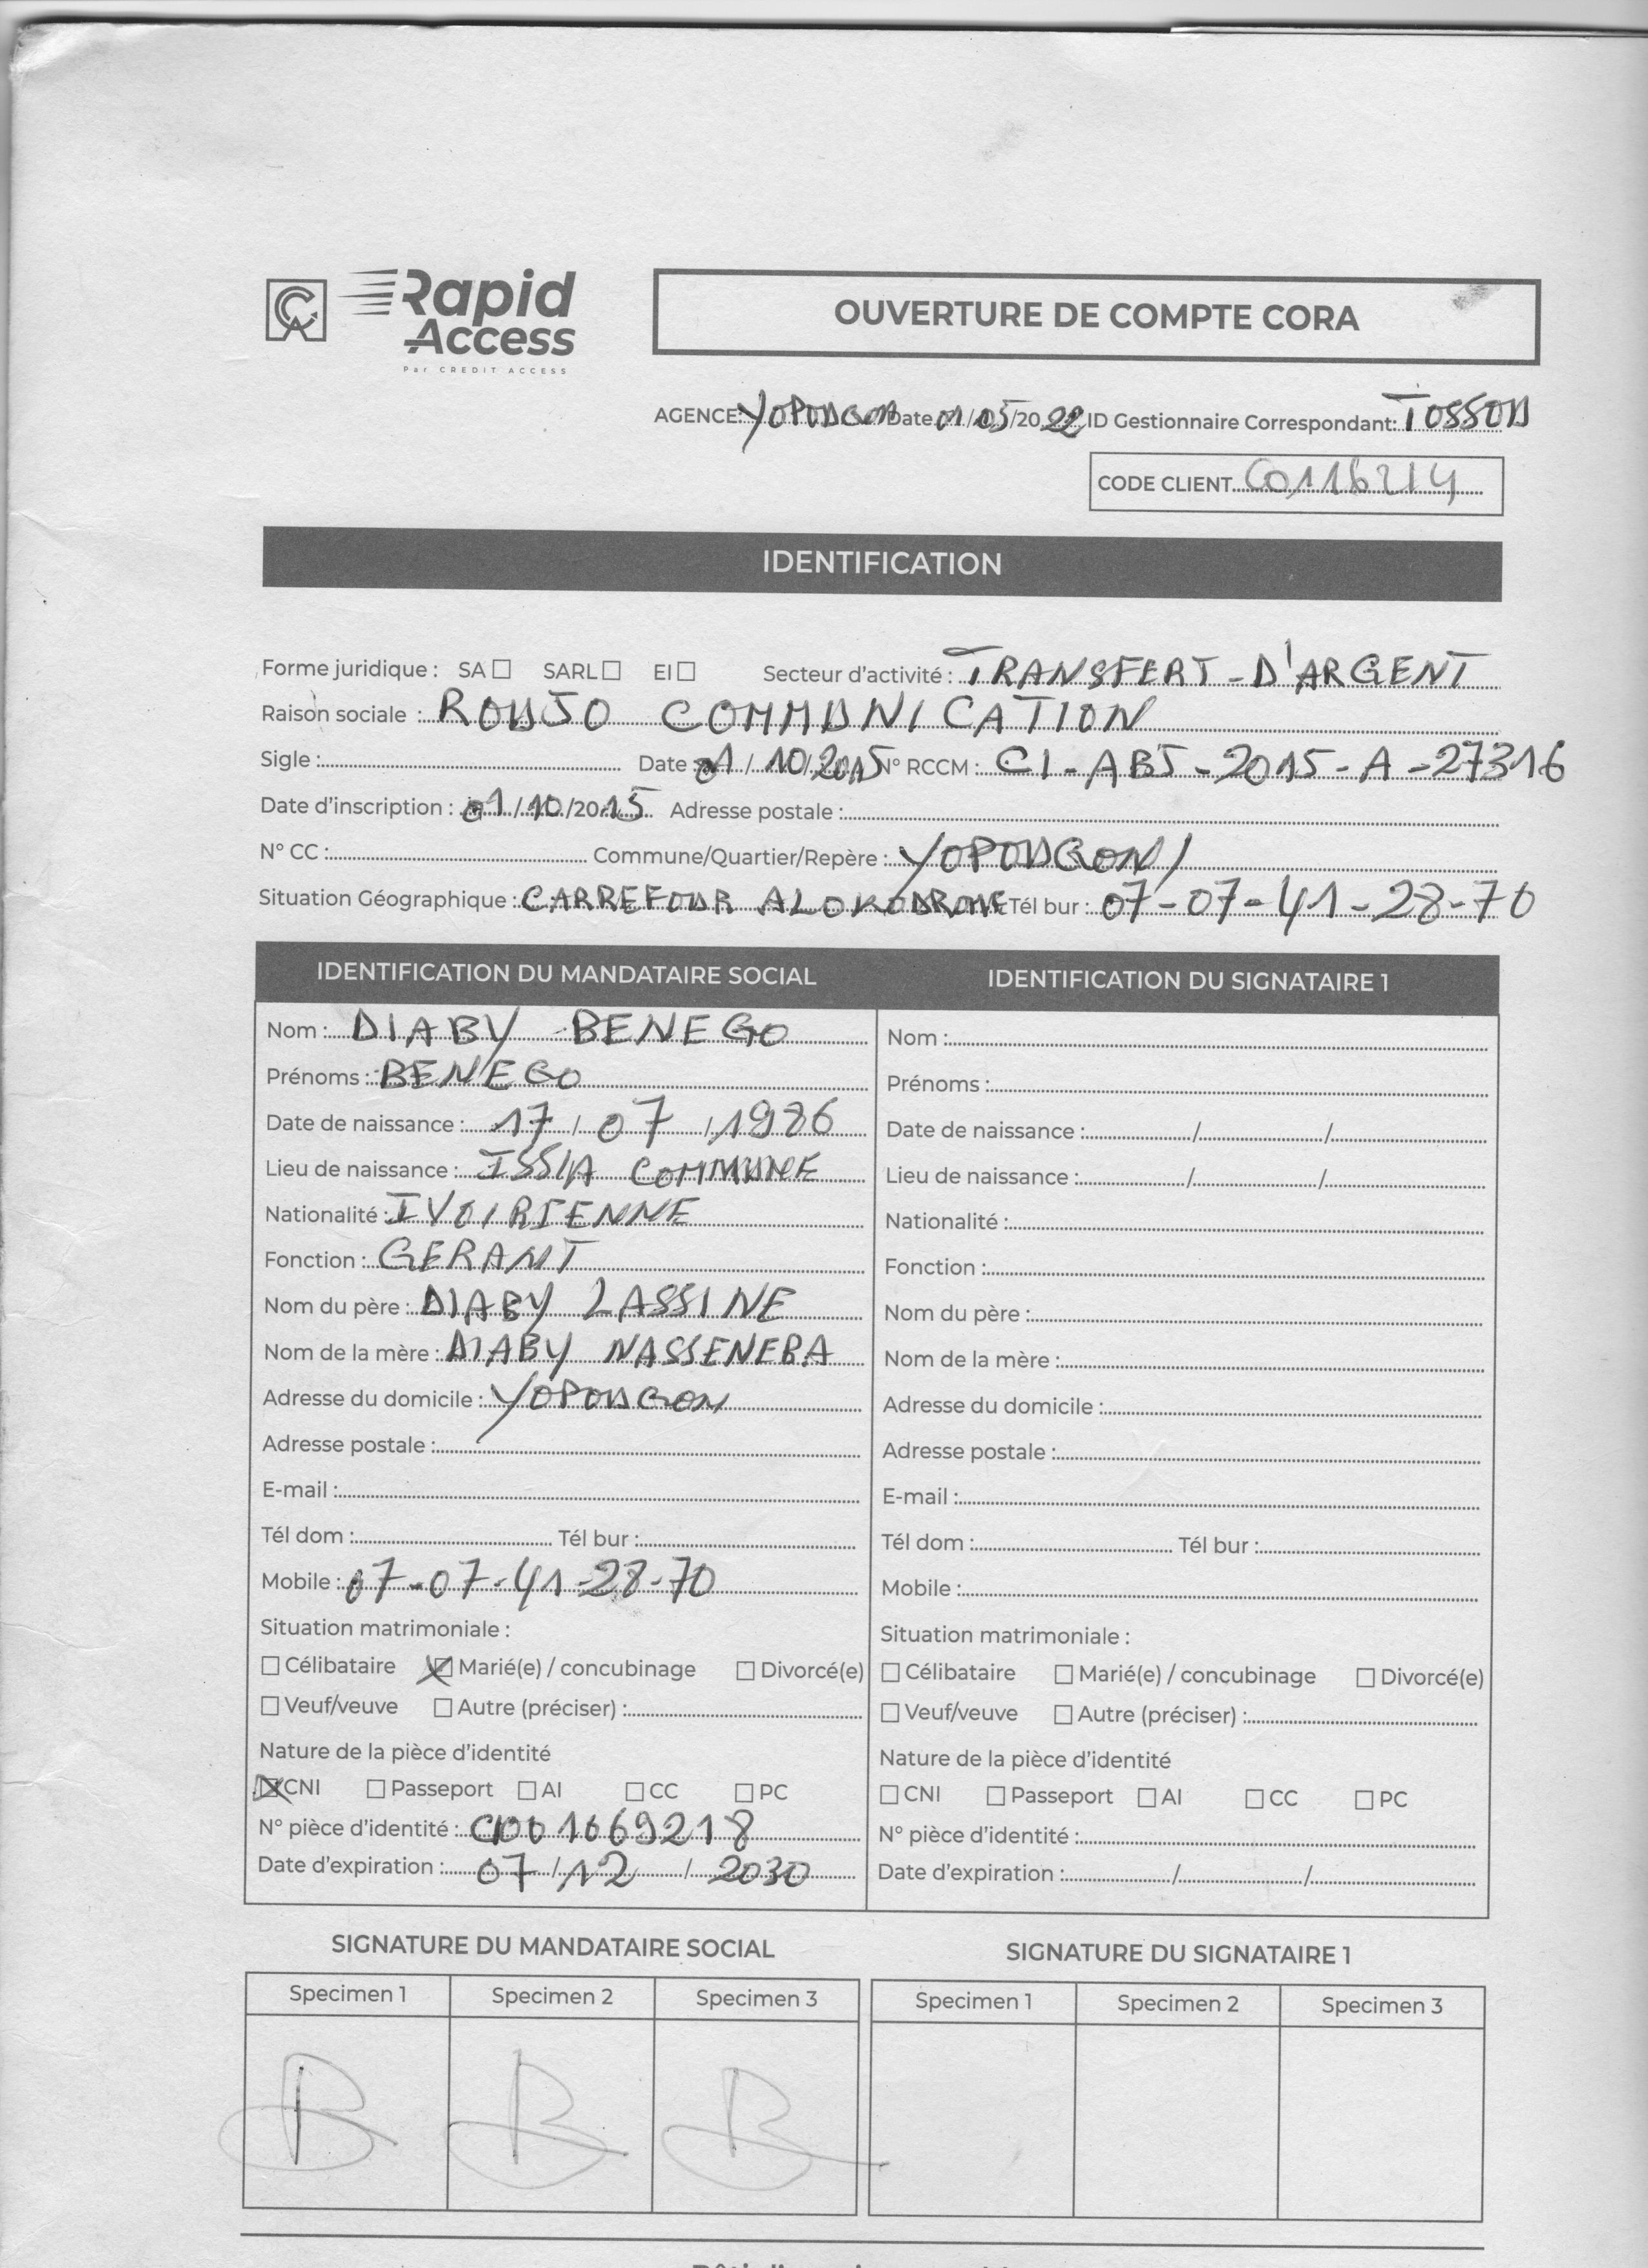 CA Rapid
Access
Par CREDIT ACCESS
OUVERTURE DE COMPTE CORA
AGENCE: YOPOUGON Date 01/05/2022 ID Gestionnaire Correspondant: TOSSOU
CODE CLIENT C0116214
IDENTIFICATION
Forme juridique : SA☐ SARL☐ EI☐ Secteur d'activité : TRANSFERT-D'ARGENT
Raison sociale : ROUJO COMMUNICATION
Sigle : Date 01/10/2015 N° RCCM : CI-ABJ-2015-A-27316
Date d'inscription : 01/10/2015 Adresse postale :
N° CC : Commune/Quartier/Repère : YOPOUGON/
Situation Géographique : CARREFOUR ALOKODROME Tél bur : 07-07-41-28-70
IDENTIFICATION DU MANDATAIRE SOCIAL IDENTIFICATION DU SIGNATAIRE 1
Nom : DIABY BENEGO Nom :
Prénoms : BENEGO Prénoms :
Date de naissance : 17/07/1986 Date de naissance : / /
Lieu de naissance : ISSIA COMMUNE Lieu de naissance : / /
Nationalité : IVOIRIENNE Nationalité :
Fonction : GERANT Fonction :
Nom du père : DIABY LASSINE Nom du père :
Nom de la mère : DIABY NASSENEBA Nom de la mère :
Adresse du domicile : YOPOUGON Adresse du domicile :
Adresse postale : Adresse postale :
E-mail : E-mail :
Tél dom : Tél bur : Tél dom : Tél bur :
Mobile : 07-07-41-28-70 Mobile :
Situation matrimoniale : Situation matrimoniale :
☐ Célibataire ☒ Marié(e) / concubinage ☐ Divorcé(e) ☐ Célibataire ☐ Marié(e) / concubinage ☐ Divorcé(e)
☐ Veuf/veuve ☐ Autre (préciser) : ☐ Veuf/veuve ☐ Autre (préciser) :
Nature de la pièce d'identité Nature de la pièce d'identité
☒ CNI ☐ Passeport ☐ AI ☐ CC ☐ PC ☐ CNI ☐ Passeport ☐ AI ☐ CC ☐ PC
N° pièce d'identité : CI001669218 N° pièce d'identité :
Date d'expiration : 07/12/2030 Date d'expiration : / /
SIGNATURE DU MANDATAIRE SOCIAL SIGNATURE DU SIGNATAIRE 1
Specimen 1 Specimen 2 Specimen 3 Specimen 1 Specimen 2 Specimen 3